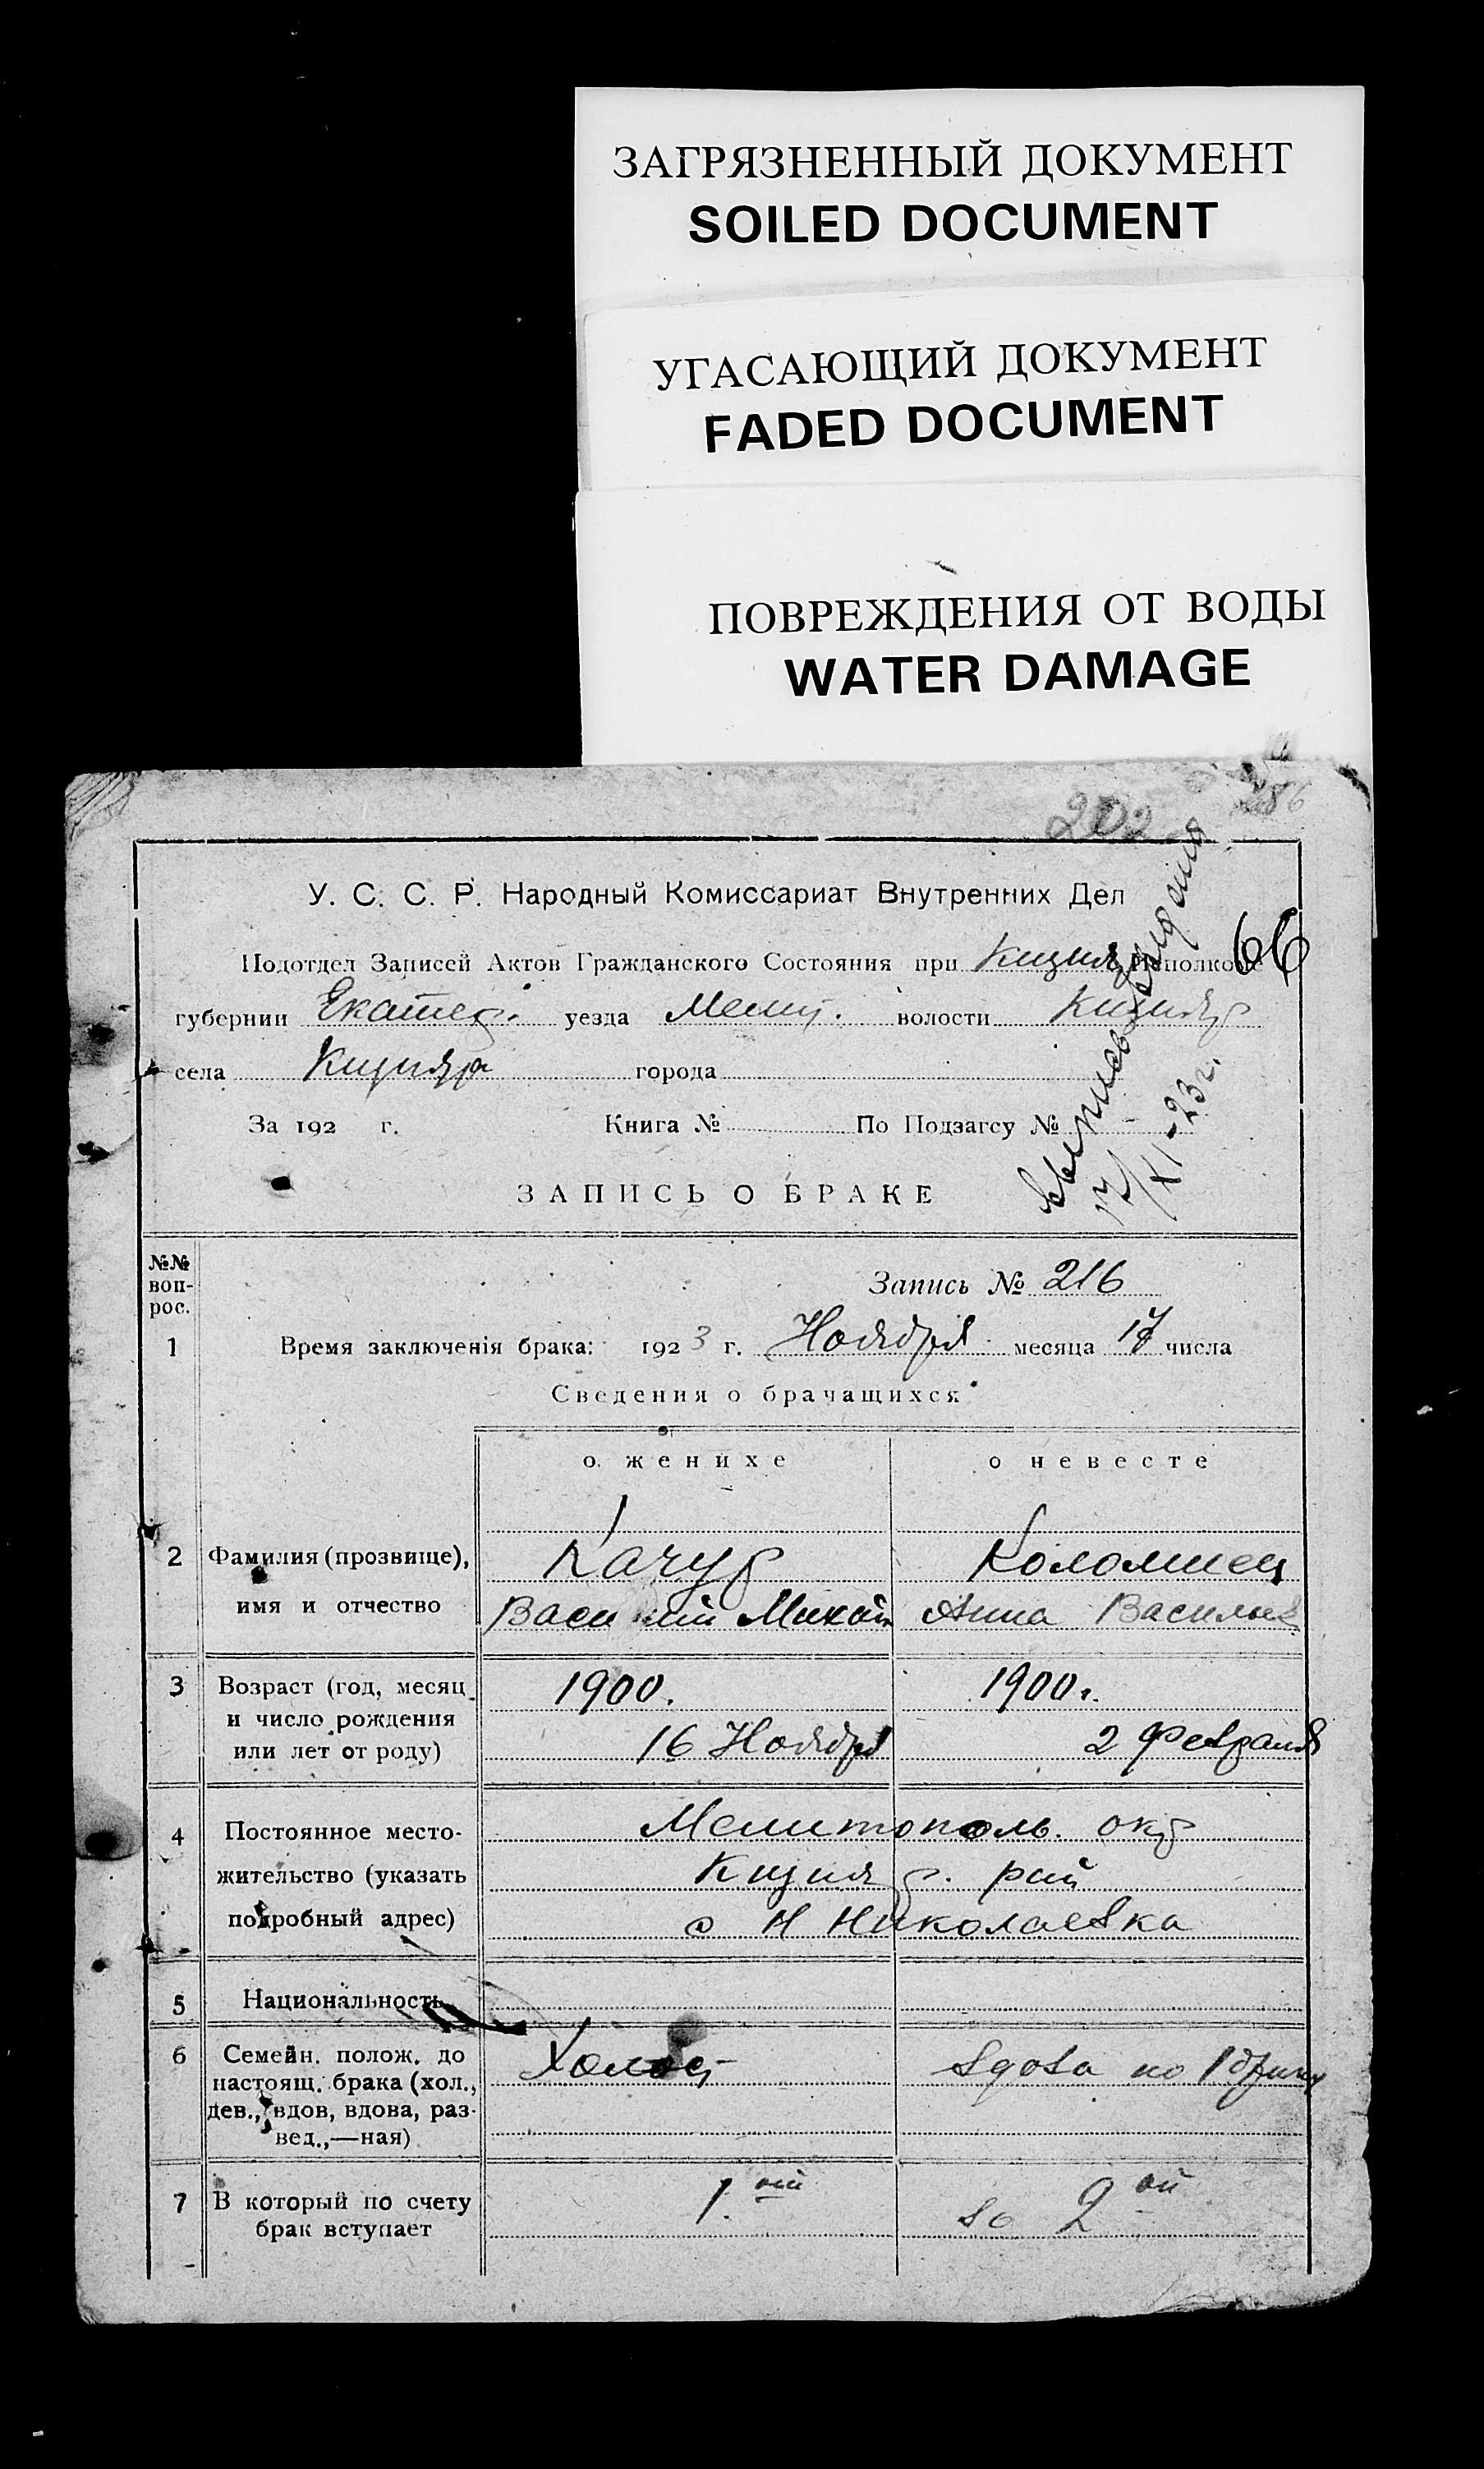 ЗАГРЯЗНЕННЫЙ ДОКУМЕНТ
SOILED DOCUMENT
УГАСАЮЩИЙ ДОКУМЕНТ
FADED DOCUMENT
ПОВРЕЖДЕНИЯ ОТ ВОДЫ
WATER DAMAGE
202
286
У. С. С. Р. Народный Комиссариат Внутренних Дел
66
Подотдел Записей Актов Гражданского Состояния при Кизияр Исполкоме
губернии Екатер. уезда Мелит. волости Кизияр
села Кизияр города
За 192 г. Книга № По Подзагсу №
выпись выдана
17/XI-23 г.
ЗАПИСЬ О БРАКЕ
№№ воп-рос.
Запись № 216
1 Время заключенія брака: 1923 г. Ноября месяца 17 числа
Сведения о брачащихся
о женихе о невесте
2 Фамилия (прозвище), Качур Коломиец
имя и отчество Василий Михай Анна Васильев
3 Возраст (год, месяц 1900. 1900 г.
и число рождения
или лет от роду) 16 Ноября 2 Февраля
4 Постоянное место- Мелитополь. окр
жительство (указать Кизияр. рай
подробный адрес) с Н Николаевка
5 Национальность
6 Семейн. полож. до Холост вдова по
настоящ. брака (хол.,
дев., вдов, вдова, раз-
вед.,—ная)
7 В который по счету 1.ый во 2 ой
брак вступает